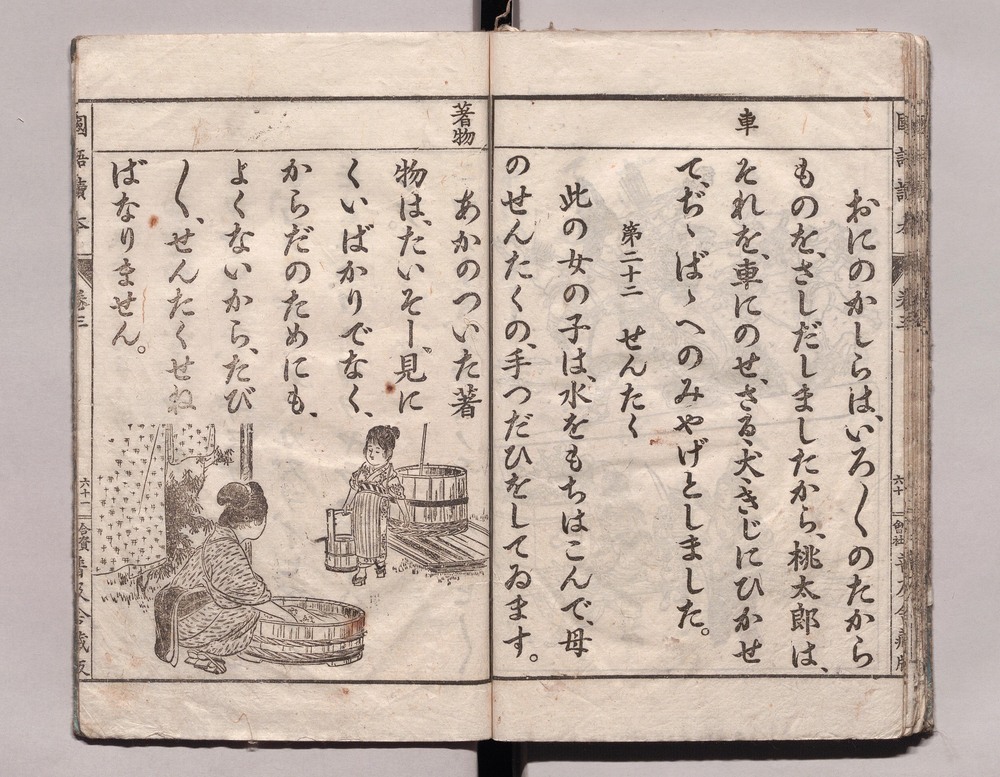 車
おにのかしらは、いろ〱のたから
ものを、さしだしましたから、桃太郎は、
それを、車にのせ、さる、犬、きじにひかせ
て、ぢゝばゝへのみやげとしました。
第二十二 せんたく
此の女の子は、水をもちはこんで、母
のせんたくの、手つだひをしてゐます。
著物
あかのついた著
物は、たいそー、見に
くいばかりでなく、
からだのためにも、
よくないから、たび
〱、せんたくせね
ばなりません。
國語讀本 卷三 六十一